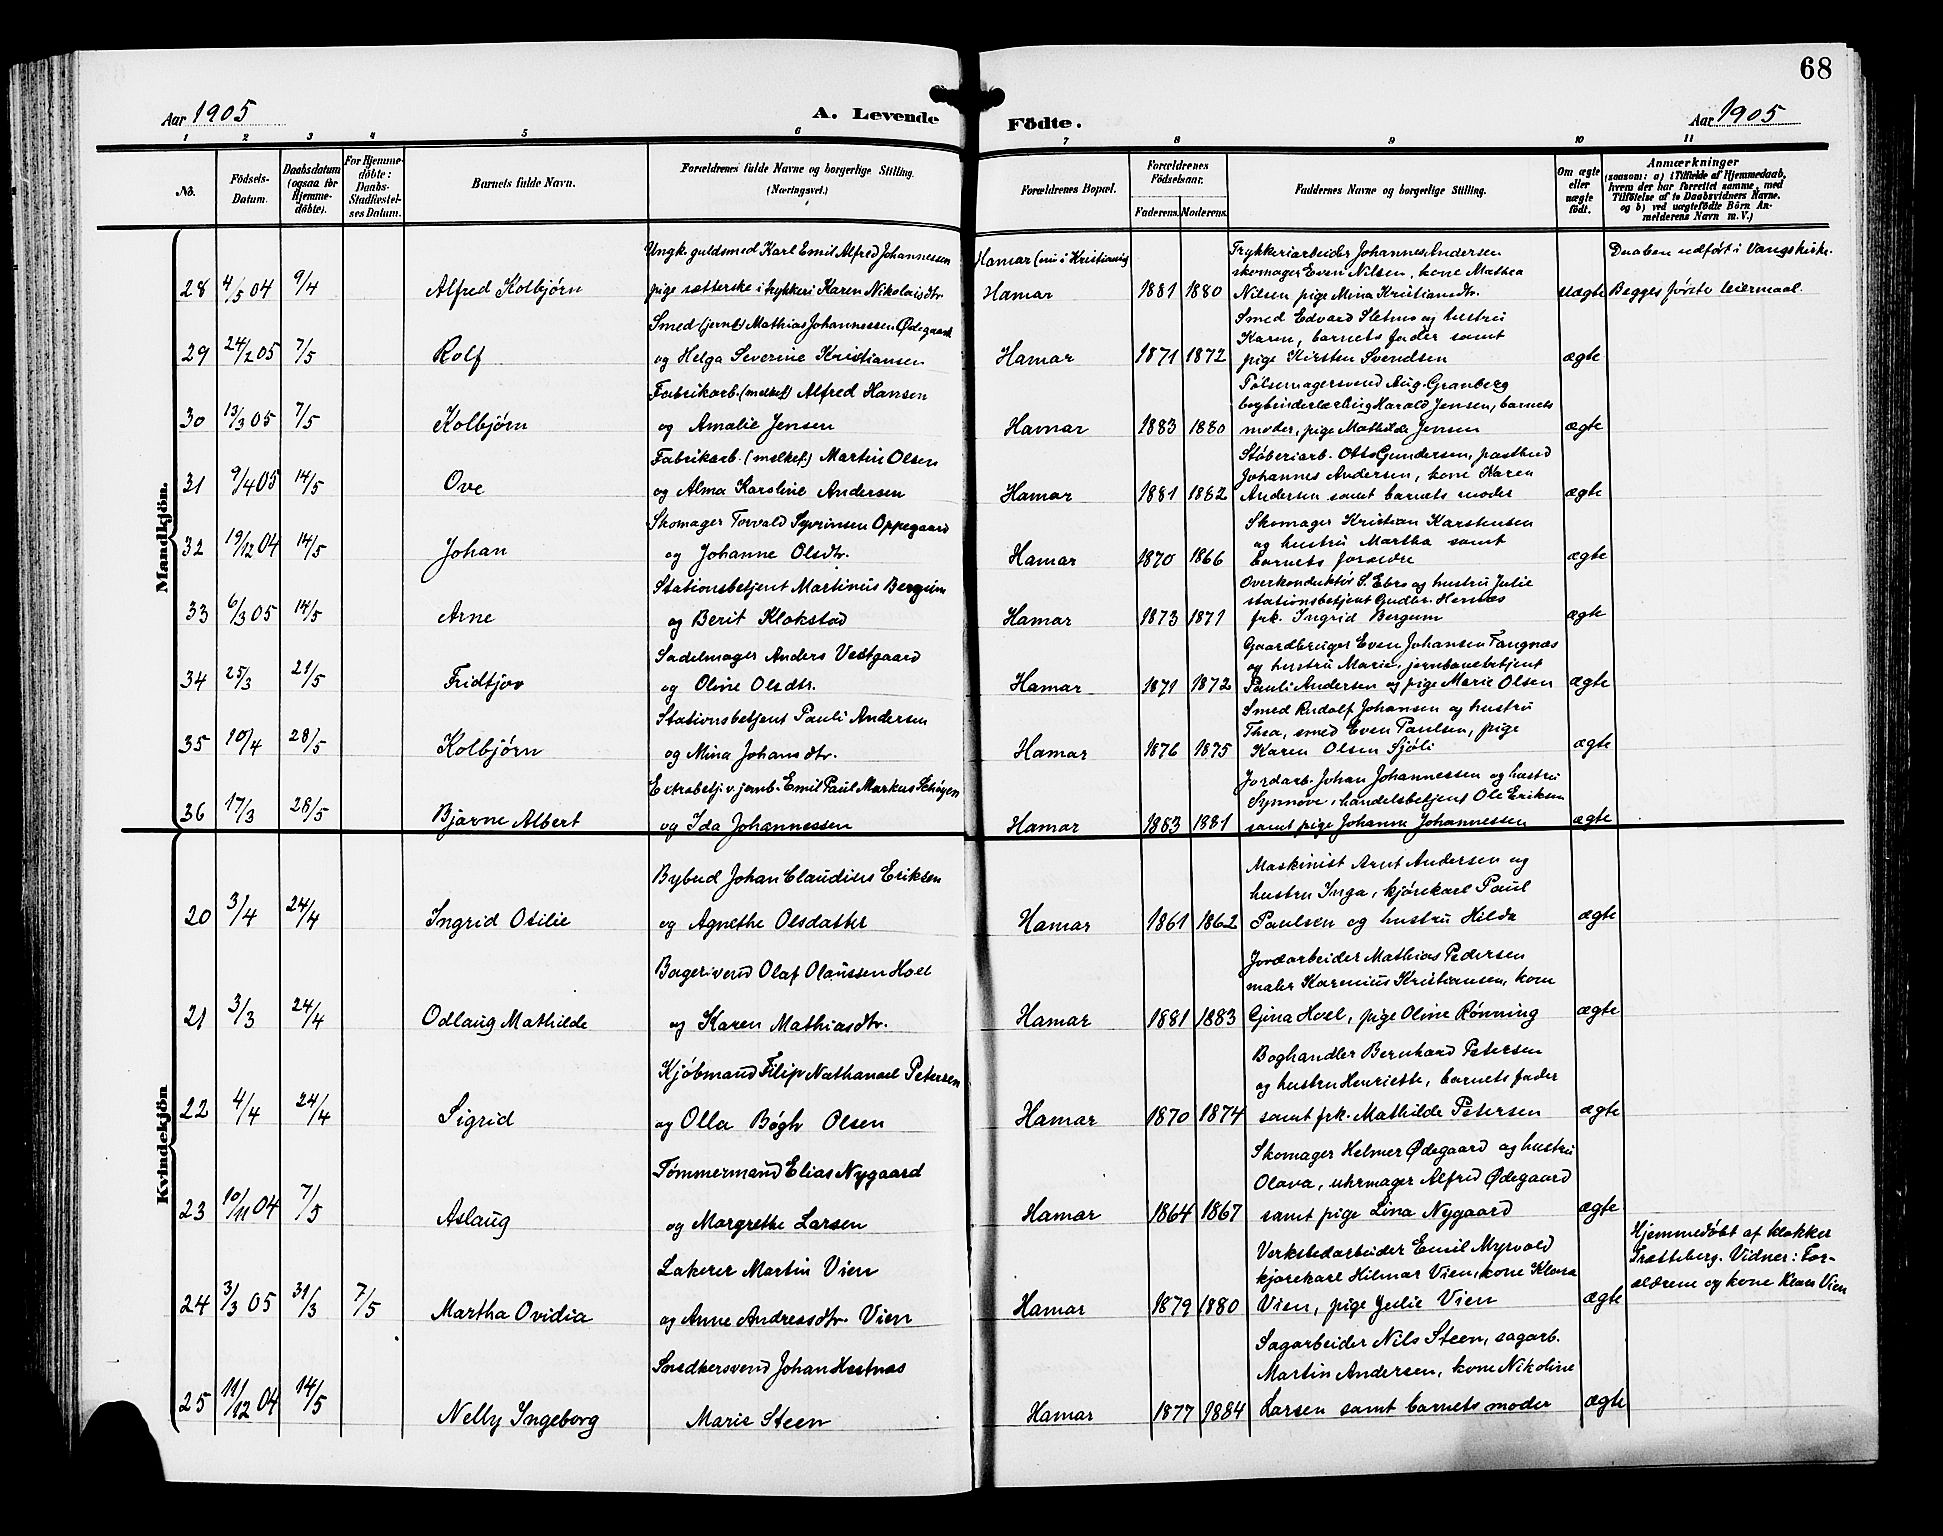 68
Aar 1905
A. Levende
Födte.
Aar 1905
1 2 3 4 5 6 7 8 9 10 11
No.
Födsels-
Datum.
Daabsdatum
(ogsaa for
Hjemme-
döbte).
For Hjemme-
döbte:
Daabs-
Stadfæstel-
ses Datum.
Barnets fulde Navn.
Forældrenes fulde Navne og borgerlige Stilling.
(Næringsvei.)
Forældrenes Bopæl.
Forældrenes
Födselsaar.
Faderens. Moderens.
Faddernes Navne og borgerlige Stilling.
Om ægte
eller
uægte
födt.
Anmærkninger
(saasom: a) i Tilfælde af Hjemmedaab,
hvem der har forrettet samme, med
Tilföielse af to Daabsvidners Navne,
og b) ved uægtefödte Börn An-
melderens Navn m. V.)
Mandkjön.
Ungk. guldsmed Karl Emil Alfred Johannessen Hamar (nu i Kristiania) Trykkeriarbeider Johannes Andersen Daaben udført i Vangs kirke.
skomager Even Nilsen, kone Mathea
28 4/5 04 9/4 Alfred Kolbjørn pige sætterske i trykkeri Karen Nikolaisdtr. Hamar 1881 1880 Nilsen pige Mina Kristiansdtr. uægte Begges første leiermaal.
Smed (jernb.) Mathias Johannessen Ødegaard Smed Edvard Sletmo og hustru
Karen, barnets fader samt
29 24/2 05 7/5 Rolf og Helga Severine Kristiansen Hamar 1871 1872 pige Kirsten Svendsen ægte
Fabrikarb. (melkef) Alfred Hansen Pølsemagersvend Aug. Granberg
bogbinderlærling Harald Jensen, barnets
30 13/3 05 7/5 Kolbjørn og Amalie Jensen Hamar 1883 1880 moder, pige Mathilde Jensen ægte
Fabrikarb. (melkef.) Martin Olsen Støberiarb. Otto Gundersen, postbud
Johannes Andersen, kone Karen
31 9/4 05 14/5 Ove og Alma Karoline Andersen Hamar 1881 1882 Andersen samt barnets moder ægte
Skomager Torvald Syvrinsen Oppegaard Skomager Kristian Karstensen
og hustru Martha samt
32 19/12 04 14/5 Johan og Johanne Olsdtr. Hamar 1870 1866 barnets forældre ægte
Stationsbetjent Martinius Bergum Overkonduktør S. Ebro og hustru Julie
stationsbetjent Gudbr. Hernæs
33 6/3 05 14/5 Arne og Berit Klokstad Hamar 1873 1871 frk. Ingrid Bergum ægte
Sadelmager Anders Vestgaard Gaardbruger Even Johansen Fangnæs
og hustru Marie, jernbanebetjent
34 25/3 21/5 Fridtjov og Oline Olsdtr. Hamar 1871 1872 Pauli Andersen og pige Marie Olsen ægte
Stationsbetjent Pauli Andersen Smed Rudolf Johansen og hustru
Thea, smed Even Paulsen, pige
35 10/4 28/5 Kolbjørn og Mina Johansdtr. Hamar 1876 1875 Karen Olsen Sjøli ægte
Extrabetj. v. jernb. Emil Paul Markus Schøyen Jordarb. Johan Johannessen og hustru
Synnøve, handelsbetjent Ole Eriksen
36 17/3 28/5 Bjarne Albert og Ida Johannessen Hamar 1883 1881 samt pige Johanne Johannessen ægte
Kvindekjön
Bybud Johan Claudius Eriksen Maskinist Arnt Andersen og
hustru Inga, kjørekarl Paul
20 3/4 24/4 Ingrid Otilie og Agnethe Olsdatter Hamar 1861 1862 Paulsen og hustru Hilda ægte
Bagersvend Olaf Olaussen Hoel Jordarbeider Mathias Pedersen
maler Karenius Kristiansen, kone
21 3/3 24/4 Odlaug Mathilde og Karen Mathiasdtr. Hamar 1881 1883 Gina Hoel, pige Oline Rønning ægte
Kjøbmand Filip Nathanael Petersen Boghandler Bernhard Petersen
og hustru Henriette, barnets fader
22 4/4 24/4 Sigrid og Olla Bøgh Olsen Hamar 1870 1874 samt frk. Mathilde Petersen ægte
Tømmermand Elias Nygaard Skomager Helmer Ødegaard og hustru
Olava, uhrmager Alfred Ødegaard
23 10/11 04 7/5 Aslaug og Margrethe Larsen Hamar 1864 1867 samt pige Lina Nygaard ægte
Lakerer Martin Vien Verkstedarbeider Emil Myrvold Hjemmedøbt af klokker
kjørekarl Hilmar Vien, kone Klara Trætteberg. Vidner: For-
24 3/3 05 31/3 7/5 Martha Ovidia og Anne Andreasdtr. Vien Hamar 1879 1880 Vien, pige Julie Vien ægte ældrene og kone Klara Vien
Snedkersvend Johan Hestnæs Sagarbeider Nils Steen, sagarb.
Martin Andersen, kone Nikoline
25 11/12 04 14/5 Nelly Ingeborg Marie Steen Hamar 1877 1884 Larsen samt barnets moder ægte